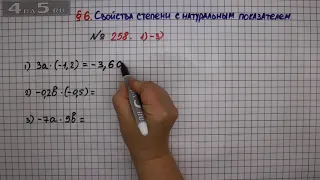 4 на 5.ru
§6. Свойства степени с натуральным показателем
№ 258. 1)-3)
1) 3а · (-1,2) = -3,6а
2) -0,2в · (-0,5) =
3) -7а · 9в =